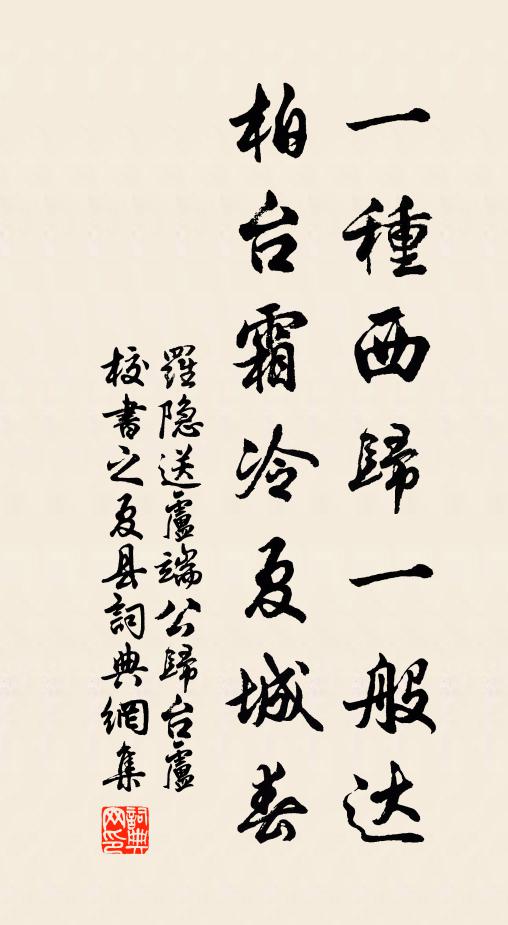 一種西歸一般达
柏台霜冷夏城春
羅隐送盧端公歸台盧
校書之夏县詞典網集
詞典网印